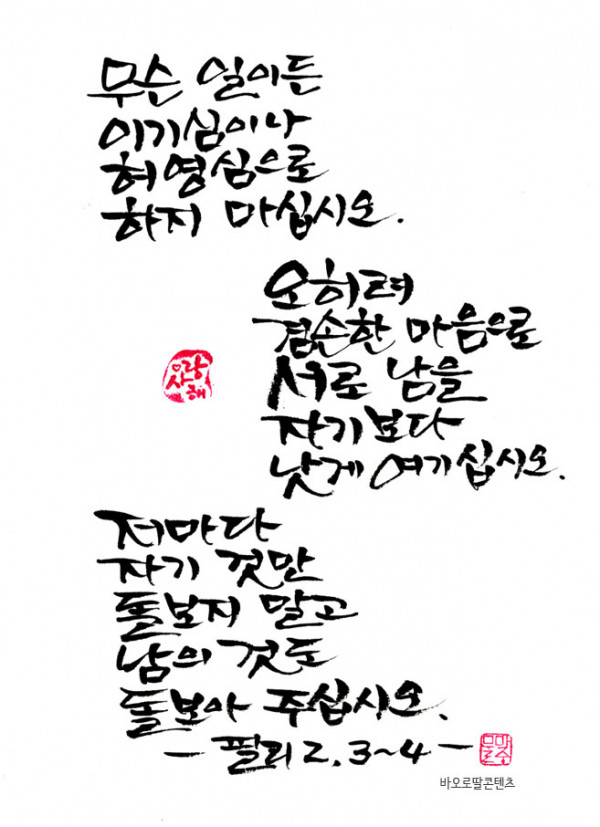 무슨 일이든
이기심이나
허영심으로
하지 마십시오.
오히려
겸손한 마음으로
서로 남을
자기보다
낫게 여기십시오.
사랑해
저마다
자기 것만
돌보지 말고
남의 것도
돌보아 주십시오.
- 필리 2, 3~4 -
바오로딸콘텐츠